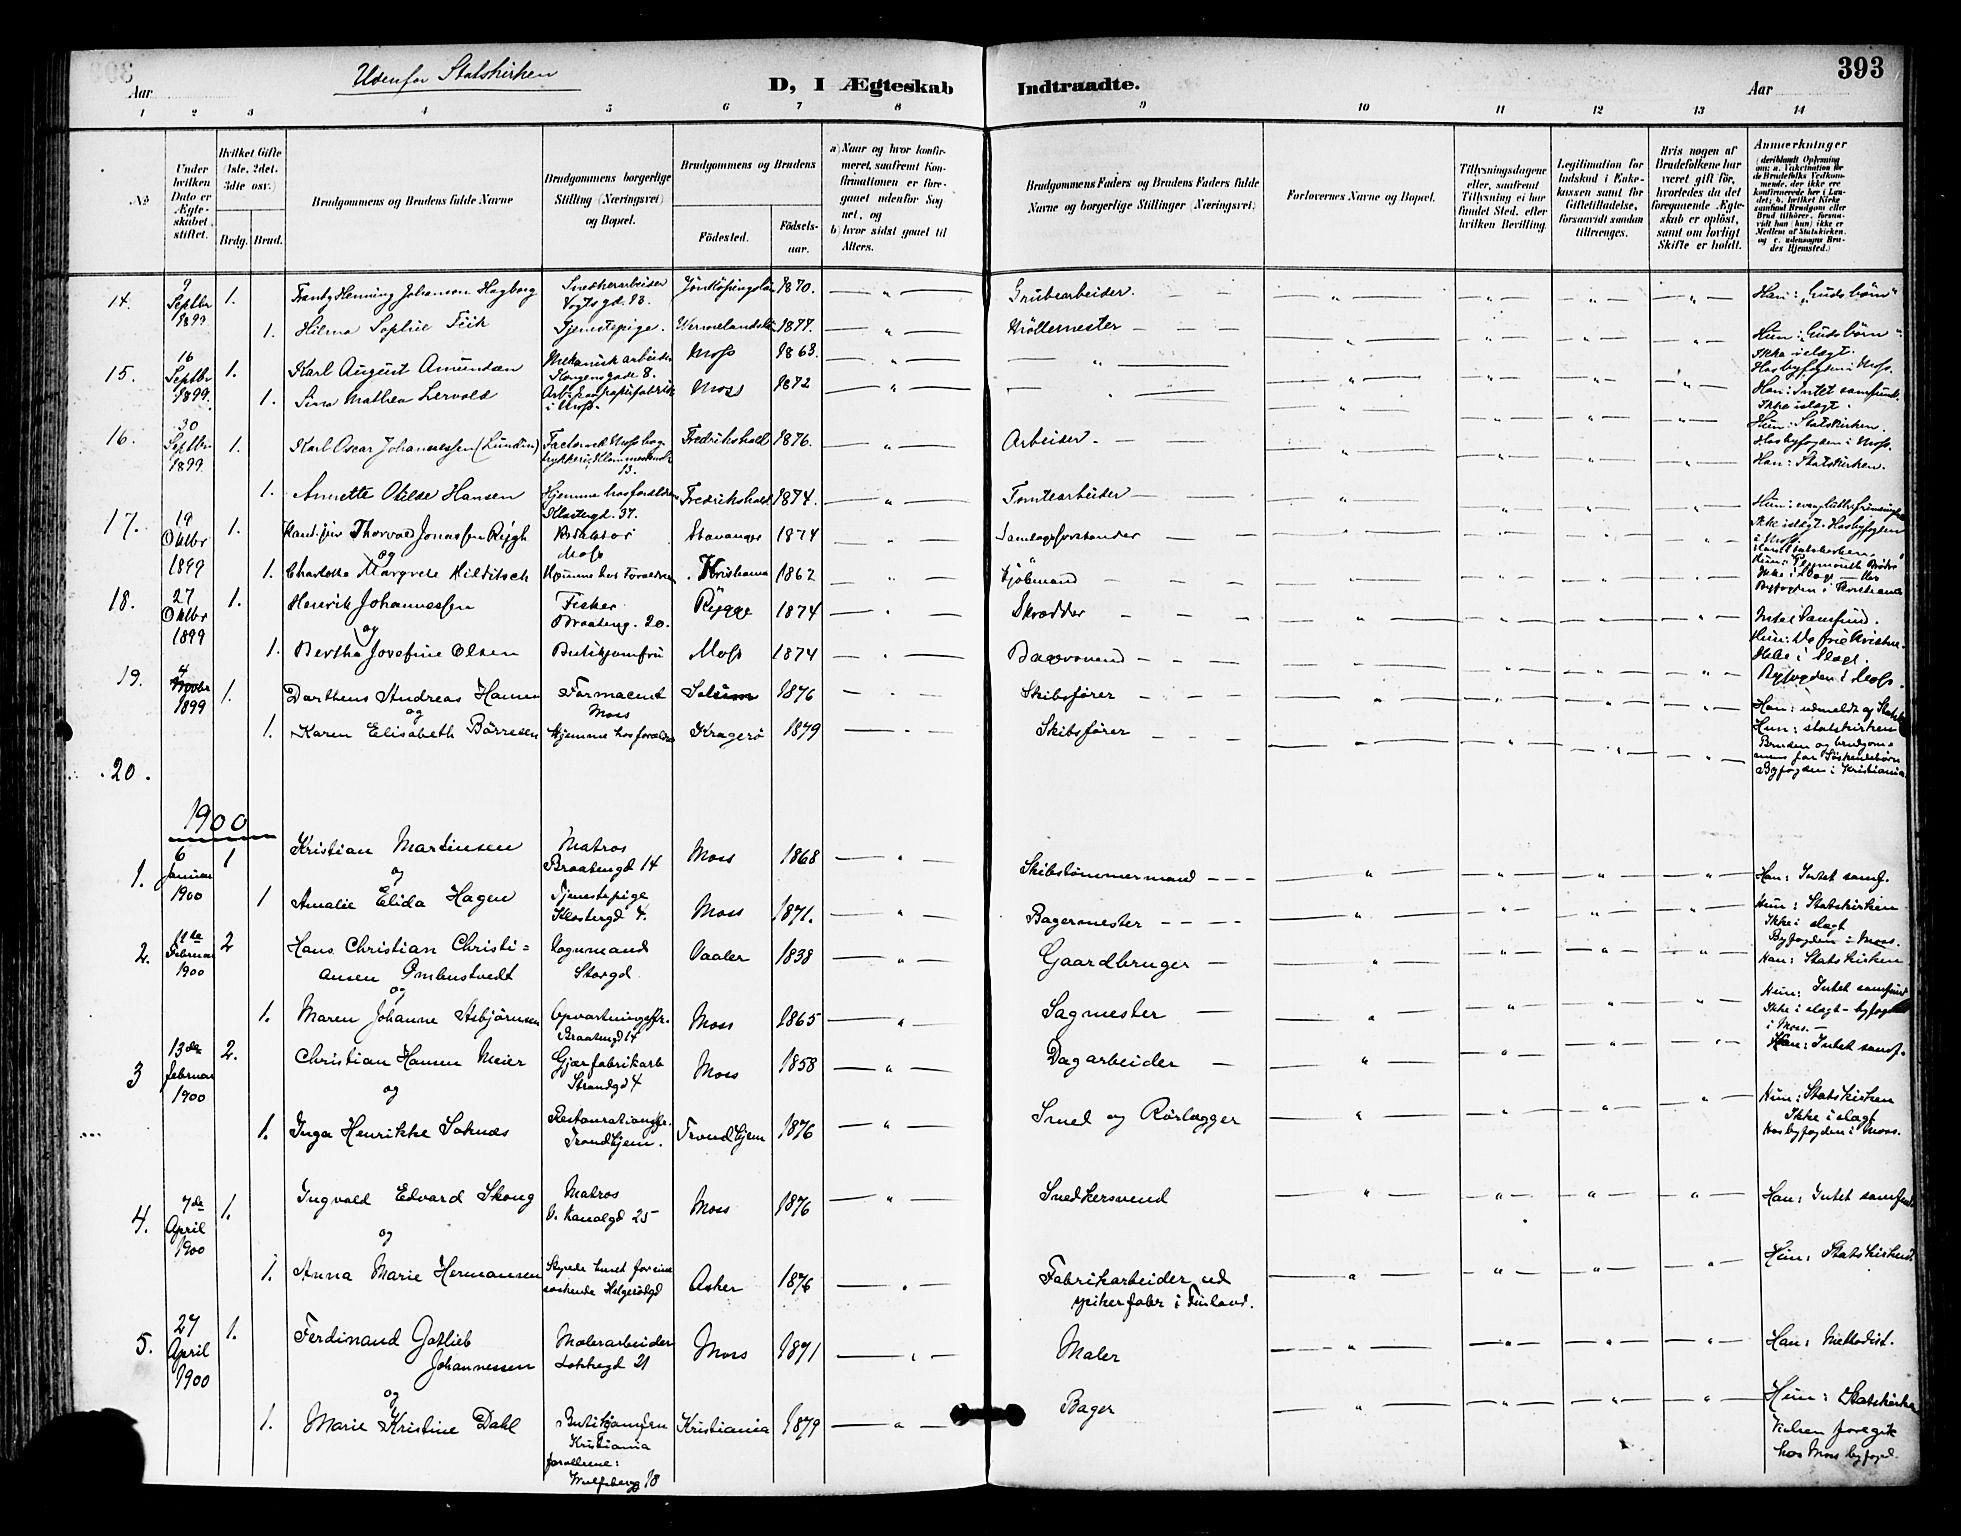 393
Udenfor Statskirken
Aar
D, I Ægteskab Indtraadte.
Aar
1 2 3 4 5 6 7 8 9 10 11 12 13 14
No
Under hvilken Dato er Ægteskabet stiftet.
Hvilket Gifte (1ste, 2det, 3die osv.)
Brdg. Brud.
Brudgommens og Brudens fulde Navne
Brudgommens borgerlige Stilling (Næringsvei) og Bopæl.
Brudgommens og Brudens
Fødested.
Fødselsaar.
a) Naar og hvor konfirmeret, saafremt Konfirmationen er foregaaet udenfor Sognet, og
b) hvor sidst gaaet til Alters.
Brudgommens Faders og Brudens Faders fulde Navne og borgerlige Stillinger (Næringsvei)
Forlovernes Navne og Bopæl.
Tillysningsdagene eller, saafremt Tillysning ei har fundet Sted, efter hvilken Bevilling.
Legitimation for Indskud i Enkekassen samt for Giftetilladelse, forsaavidt saadan tiltrænges.
Hvis nogen af Brudefolkene har været gift før, hvorledes da det foregaaende Ægteskab er opløst, samt om lovligt Skifte er holdt.
Anmerkninger
14. 9 Septbr 1899 1. Frantz Henning Johanson Hagborg Snedkerarbeider Vogtsgd. 98. Jönköpingslän 1870. Grubearbeider. Han: "Guds börn"
1. Hilma Sophie Feik Tjenestepige. Wermelandslän 1877. Møllemester Hun: Guds børn" Ikke i slægt. Hos byfogden i Moss.
15. 16 Septbr 1899. 1. Karl August Amundsen Mekanisk arbeider Kongensgade 8. Moss 1863. Han: Intet samfund. Ikke i slægt.
1. Sina Mathea Lervold Arb. i Moss. Moss 1872 Hun: Statskirken. Hos byfogden i Moss.
16. 30 Septbr 1899 1. Karl Oscar Johannessen (Lundin) Fredrikshald 1876. Arbeider. Han: Statskirken.
1. Annette Otilde Hansen Hjemme hos forældrene Klostergd. 37. Fredrikshald 1874. Tomtearbeider
17. 19 Oktbr 1899 1. Thorvald Jonassen Rygh Redaktør Moss Stavanger 1874 Samlagsforstander
og
1. Charlotte Margrete Hilditsch Hjemme hos Forældrene Kristiania 1862 Kjøbmand Byfogden i Kristiania
18. 27 Oktbr 1899 1. Henrik Johannessen Fisker Braateng. 20. Rygge 1874 Skrædder Intet Samfund.
og
1. Bertha Josefine Olsen Butikjomfru Moss 1874 Byfogden i Moss.
19. 4 Novbr 1899 1. Darthens Andreas Hansen Farmaceut Moss Solum 1876 Skibsfører Han: udmeldt og Statsk
og
1. Karen Elisabeth Børresen Hjemme hos forældre Kragerø 1879 Skibsfører Hun: statskirken Bruden og brudgommens far Søskendebørn Byfogden i Kristiania.
20.
1900
1. 6 Januar 1900 1 Kristian Martinsen Matros Braatengd 14 Moss 1868 Skibstømmermand Han: Intet samf.
og
1 Amalie Elida Hagen Tjenestepige Klostergd 4. Moss 1871. Bagermester Hun: Statskirken Ikke i slægt Byfogden i Moss.
2. 11te Februar 1900 2 Hans Christian Christiansen Ombustvedt Vognmand Storgd. Vaaler 1838 Gaardbruger Han: Statskirken
og
1. Maren Johanne Asbjørnsen Opvartningsfr. Braatengd 14 Moss 1865 Sagmester Hun: Intet samfund Ikke i slægt - byfogden i Moss.
3 13de februar 1900 2. Christian Hansen Meier Gjærfabrikarb Strandgd 4 Moss 1858 Dagarbeider Han: Intet samf.
og
1. Inga Henrikke Saknæs Restaurationsfr. Trondhjem. Trondhjem 1876 Smed og Rørlægger Hun: Statskirken Ikke i slægt Hos byfogden i Moss.
4. 7de April 1900 1. Ingvald Edvard Skoug Matros V. Kanalgd 25 Moss 1876 Snedkersvend Han: Intet samfund
og
1. Anna Marie Hermansen Styrede huset for sine søskende Helgerødgd Asker 1876 Fabrikarbeider ved spikerfabr i Finland. Hun: Statskirken
5. 27 April 1900 1. Ferdinand Gotlieb Johannessen Malerarbeider Løkkegd 21 Moss 1871 Maler Han: Methodist.
og
1. Marie Kristine Dahl Butikjomfru Kristiania forældrene: Wulfsbergg 18 Kristiania 1879 Bager Hun: Statskirken Vielsen foregik hos Moss byfogd.